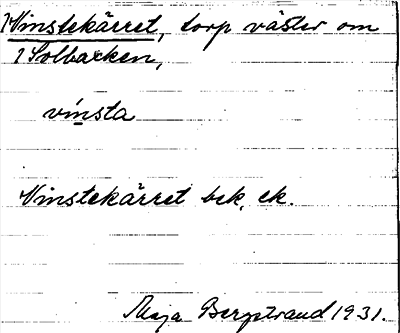 1 Vinstekärret, torp väster om
1 Solbacken,
vinsta
Vinstekärret bek. ek.
Maja Bergstrand 1931.